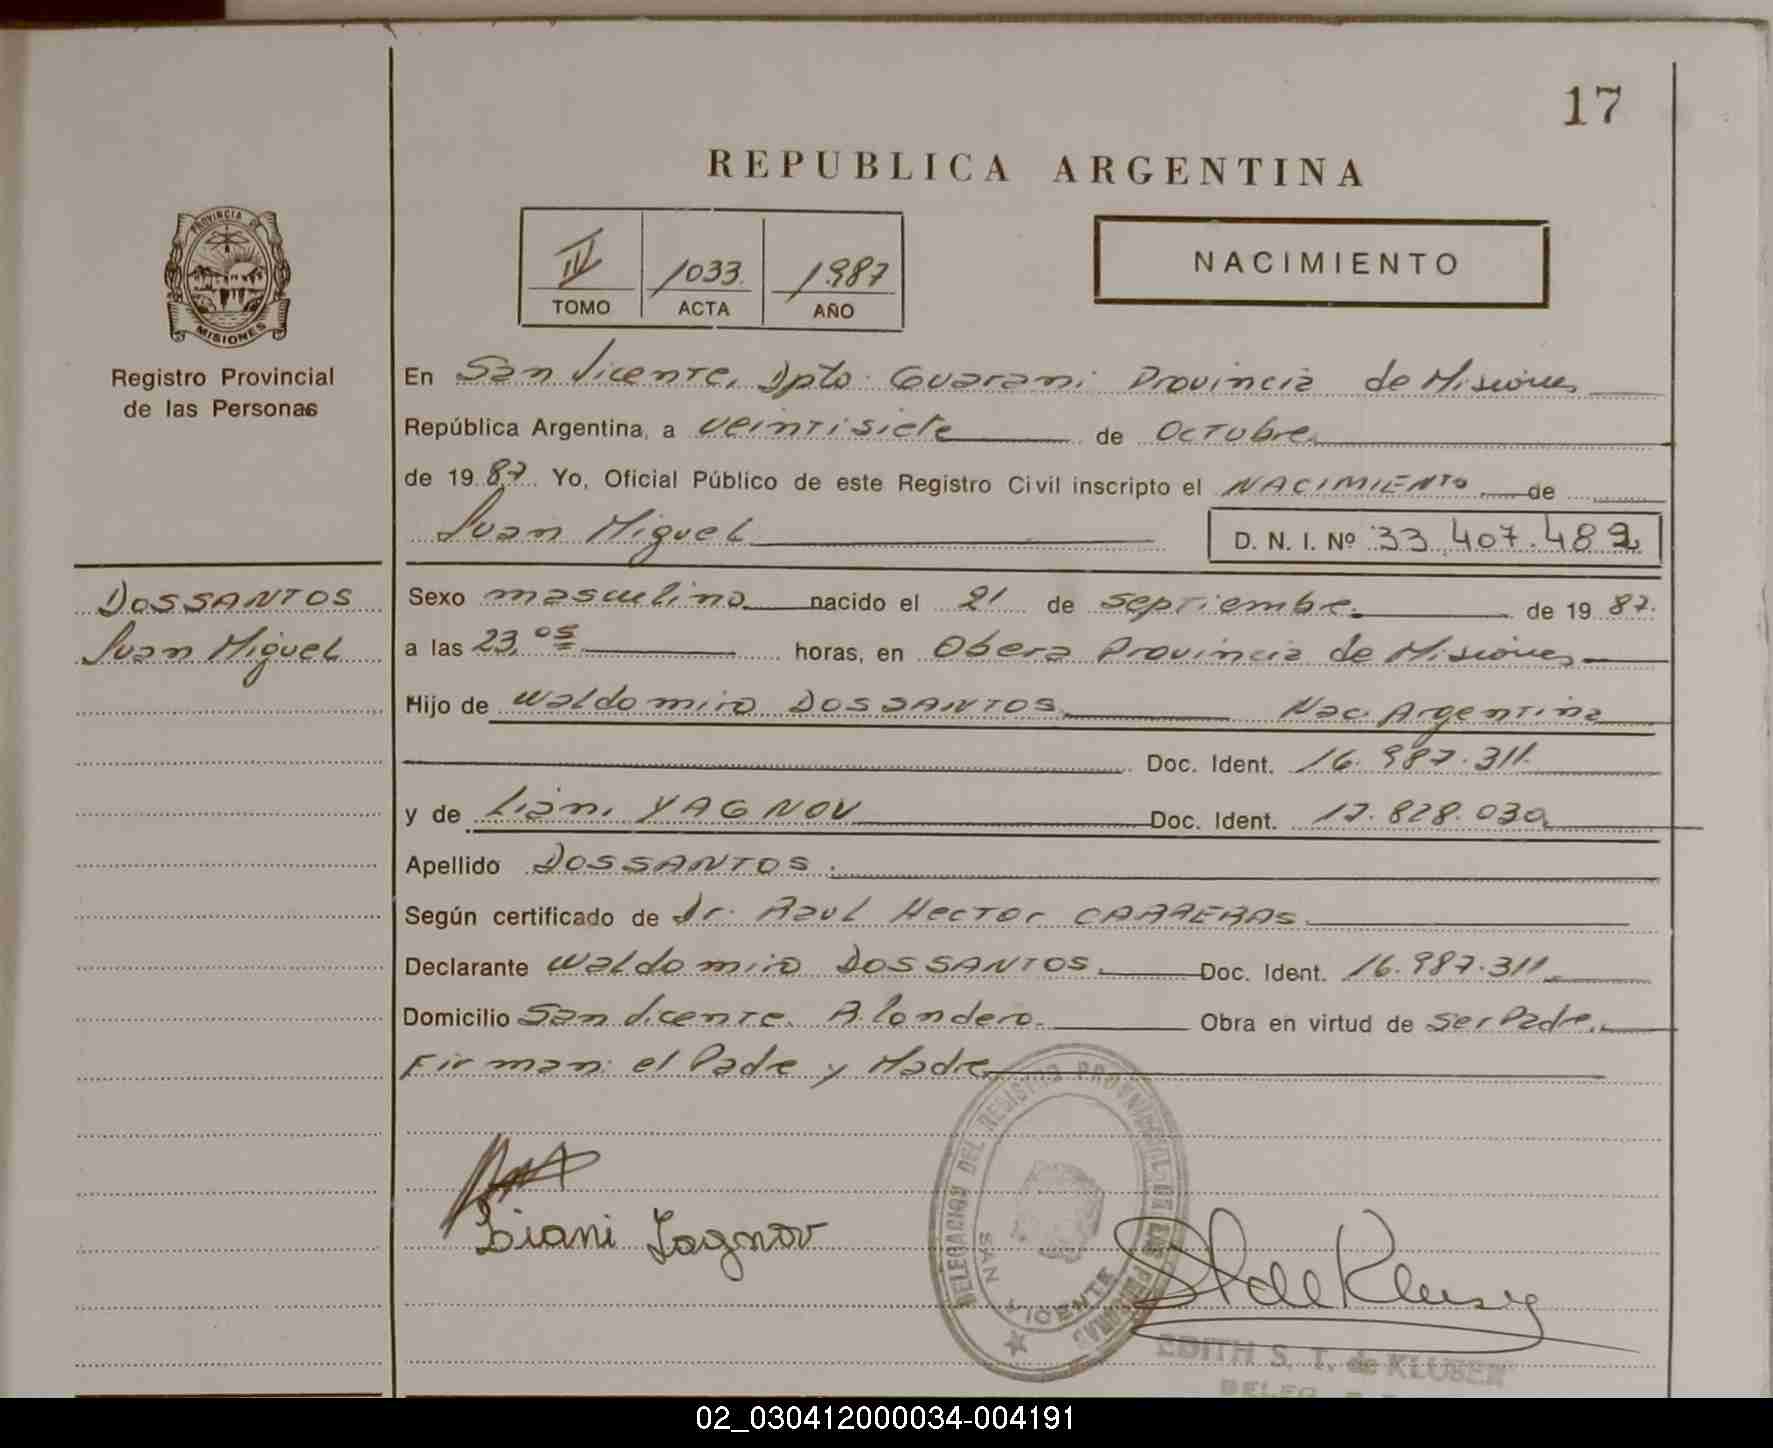 17
REPUBLICA ARGENTINA
PROVINCIA DE
MISIONES
Registro Provincial
de las Personas
IV 1033 1987
TOMO ACTA AÑO
NACIMIENTO
En San Vicente, Dpto. Guarani Provincia de Misiones
República Argentina, a veintisiete de Octubre
de 1987. Yo, Oficial Público de este Registro Civil inscripto el NACIMIENTO de
Juan Miguel D. N. I. Nº 33.407.489
DOSSANTOS
Juan Miguel
Sexo masculino nacido el 21 de septiembre de 1987.
a las 23,05 horas, en Obera Provincia de Misiones
Hijo de Waldomiro DOSSANTOS Nac. Argentina
Doc. Ident. 16.987.311
y de Liani YAGNOV Doc. Ident. 17.828.030
Apellido DOSSANTOS.
Según certificado de Dr. Raul Hector CARRERAS
Declarante Waldomiro DOSSANTOS Doc. Ident. 16.987.311
Domicilio San Vicente. B. Londero. Obra en virtud de Ser Padre.
Firman: el Padre y Madre
DELEGACION DEL REGISTRO PROVINCIAL DE LAS PERSONAS
SAN VICENTE
Liani Yagnov
EDITH S. T. de KLUSEN
02_030412000034-004191